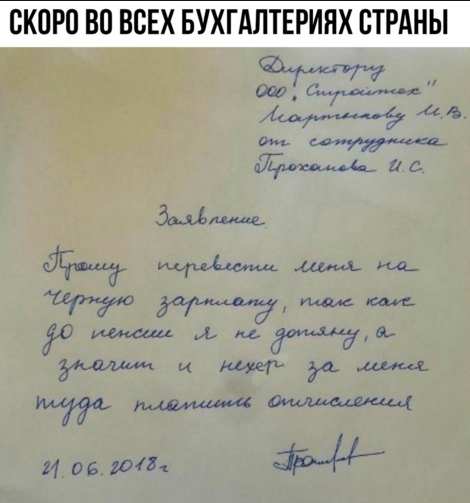 СКОРО ВО ВСЕХ БУХГАЛТЕРИЯХ СТРАНЫ
Директору
ООО "Строитек"
Мартынову И.В.
от сотрудника
Проханова И.С.
Заявление
Прошу перевести меня на
чёрную зарплату, так как
до пенсии я не дотяну, а
значит и нехер за меня
туда платить отчисления
21.06.2018г